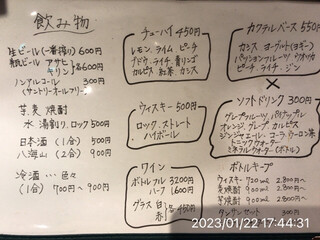 飲み物
生ビール(一番搾り)600円
瓶ビール アサヒ
キリン
各600円
ノンアルコール 300円
(サントリーオールフリー)
芋麦 焼酎
水 湯割り、ロック 500円
日本酒 (1合) 500円
八海山 (2合) 900円
冷酒…色々
(1合) 700円~900円
チューハイ 450円
レモン、ライム ピーチ
ブドウ ライチ 青リンゴ
カルピス 紅茶 カシス
ウィスキー 500円
ロック、ストレート
ハイボール
ワイン
ボトル フル 3200円
ハーフ 1600円
グラス 白
赤
450円
カクテルベース 550円
カシス ヨーグルト(ヨギー)
パッションフルーツ ウオッカ
ピーチ ライチ・ジン
×
ソフトドリンク 300円
グレープフルーツ パイナップル
オレンジ グレープ カルピス
ジンジャエール コーラ ウーロン茶
トニックウォーター
ミネラルウォーター(ボトル)
ボトルキープ
ウィスキー 700ml 2,800円~
芋焼酎 900ml 2,800円~
麦焼酎 900ml
タンサンセット 300円
2023/01/22 17:44:31